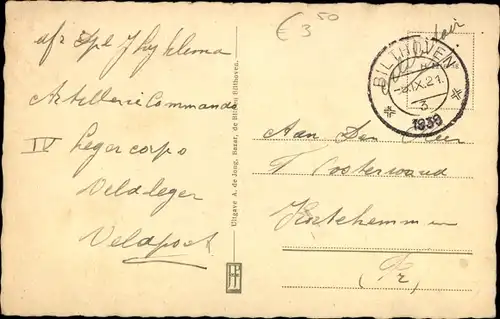 € 3,50
BILTHOVEN
-5.IX.21.
3
1939
Artillerie Commando
IV Legercorps
Veldleger
Veldpost
Uitgave A. de Jong, Bazar, de Bilt, Bilthoven.
Aan Den Heer
T Oosterwoud
(Fr)